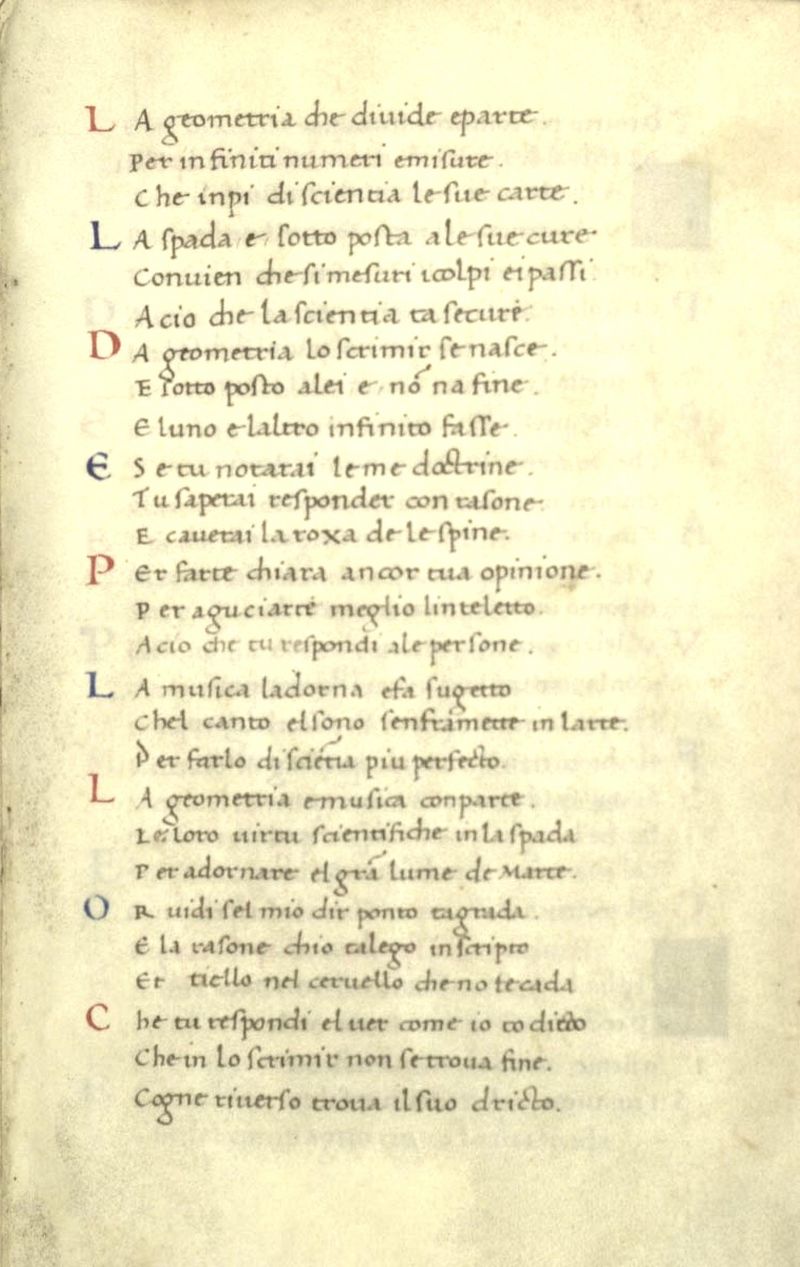 LA geometria che diuide eparte.
Per infiniti numeri emisure.
Che inpi di scientia le sue carte.
LA spada e sotto posta a le sue cure.
Conuien che si mesuri icolpi ei passi
Acio che la scientia ta secure.
DA geometria lo scrimir se nasce.
E sotto posto alei e nō na fine.
E luno e laltro infinito fasse.
ES e tu notarai le me doctrine.
Tu saperai responder con rasone
E cauerai la roxa de le spine.
PEr farte chiara ancor tua opinione.
Per aguciarte meglio linteletto.
Acio che tu respondi ale persone.
LA musica ladorna efa sugetto
Chel canto el sono senframette in larte.
Per farlo di sciētia piu perfecto.
LA geometria emusica conparte.
Le loro uirtu scientifiche in la spada
Per adornare el grā lume de Marte.
OR uidi sel mio dir ponto tagrada.
E la rasone chio talego in scripto
Et tiello nel ceruello che no te cada
Che tu respondi el uer come io to dicto
Che in lo scrimir non se troua fine.
Cogne riuerso troua il suo dricto.